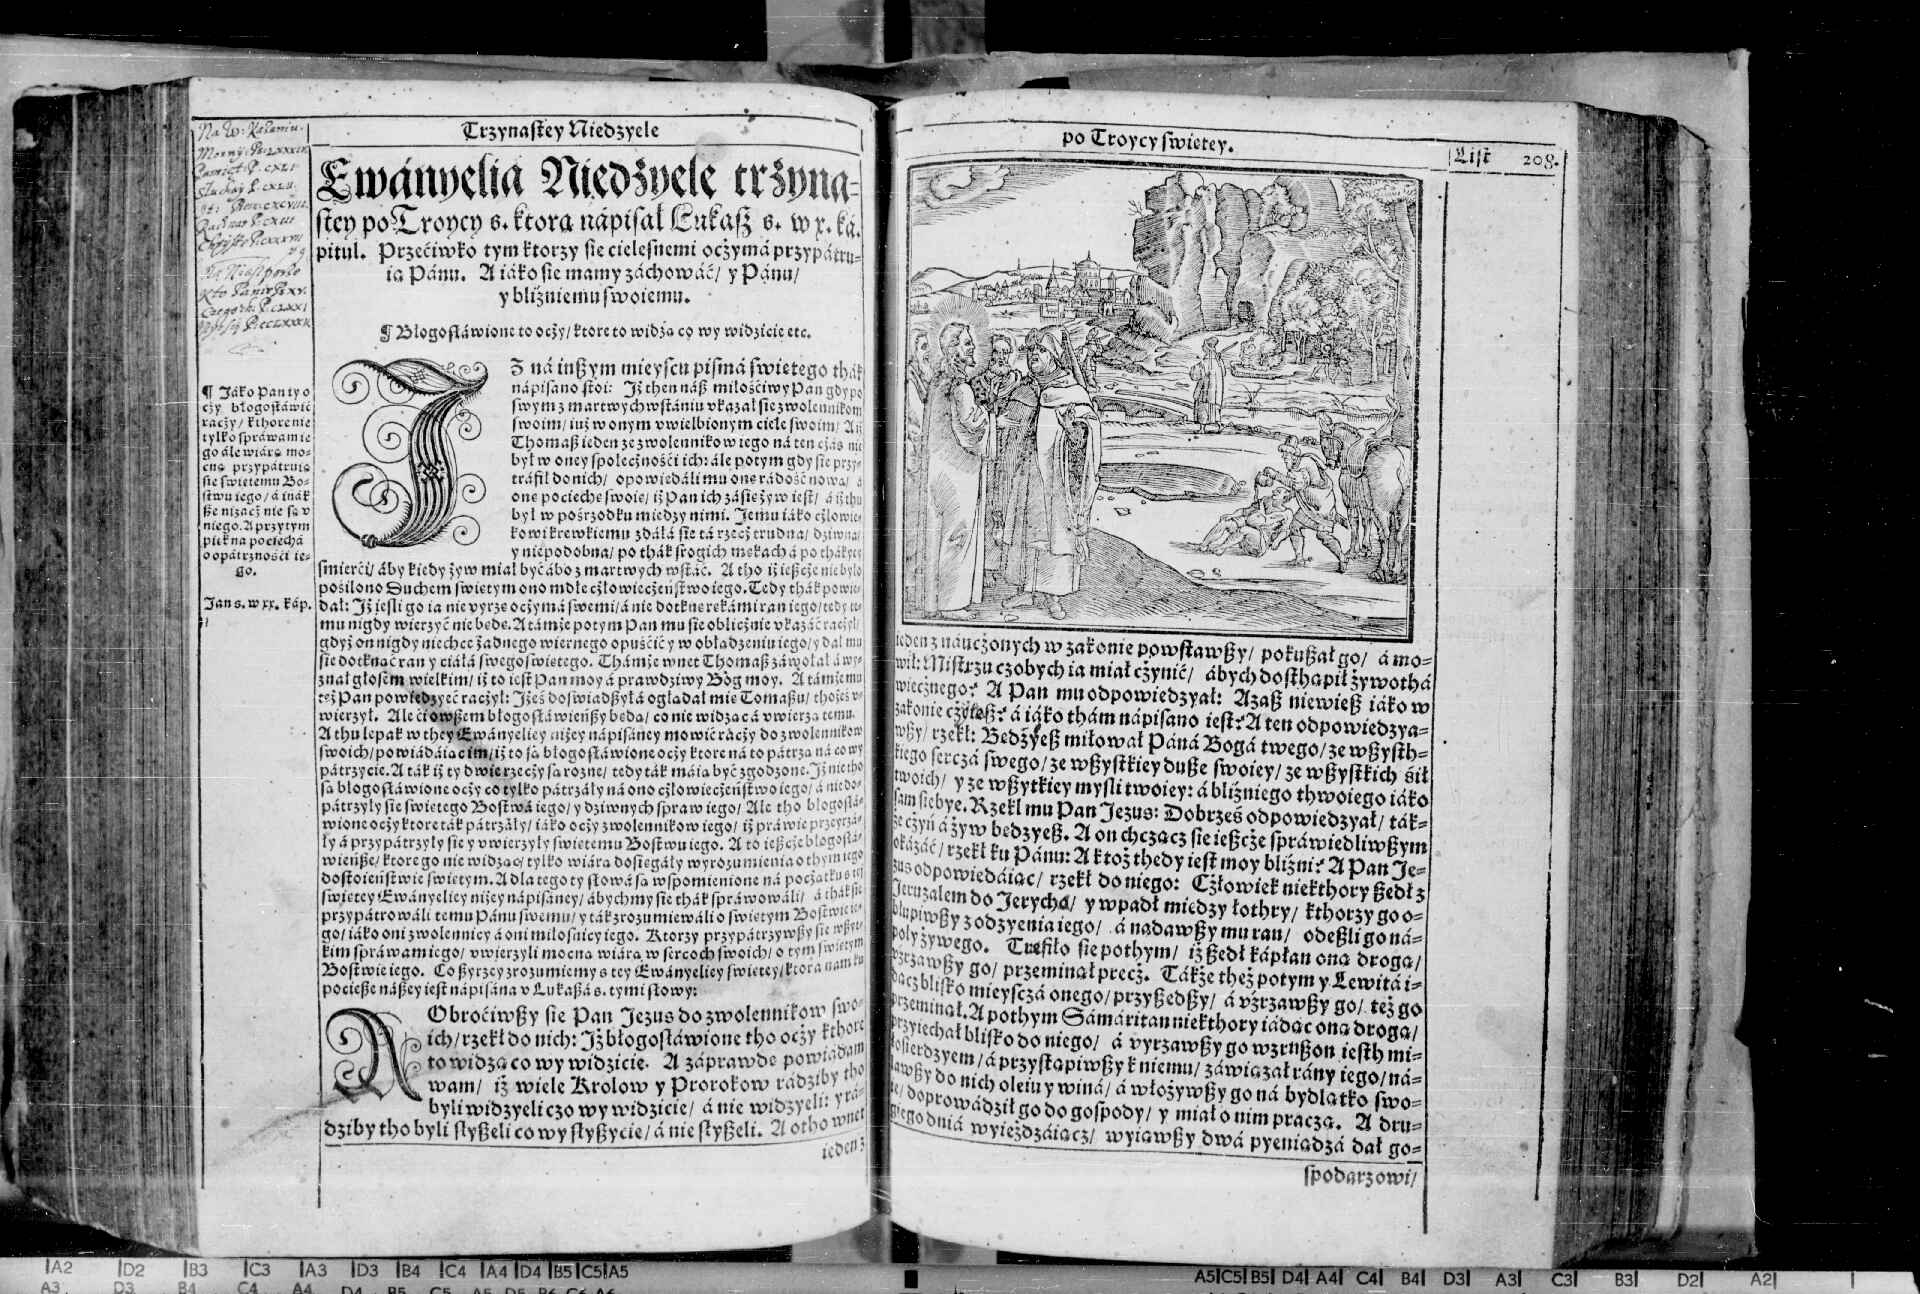 Trzynastey Niedzyele
Ewányelia Niedźyele trżyna=
stey po Troycy s. ktorą nápisał Lukasz s. w x. ká.
pitul. Przećiwko tym ktorzy sie cielesnemi oczymá przypátru=
ią Pánu. A iáko sie mamy záchowáć/ y Pánu/
y bliźniemu swoiemu.
¶ Błogosłáwione to oczy/ ktore to widzą co wy widzicie etc.
¶ Jáko Pan ty o
czy błogosłáwić
raczy/ kthore nie
tylko spráwam ie
go ále wiárą mo=
cną przypátruią
sie swietemu Bo=
stwu iego/ á inák
sze nizacz nie są v
niego. A przytym
piękna pociechá
o opátrznośći ie=
go.
Jan s. w xx. káp.
JZ ná inszym mieyscu pismá swietego thák
nápisano stoi: Jż then náß miłośćiwy Pan gdy po
swym z martwychwstániu vkazał sie zwolennikom
swoim/ iuż w onym vwielbionym ciele swoim/ Aż
Thomaß ieden ze zwolennikow iego ná ten czás nie
był w oney społecznośći ich: ále potym gdy sie przy=
tráfił do nich/ opowiedáli mu onę rádość nową/ á
onę pociechę swoię/ iż Pan ich zásię żyw iest/ á iż thu
był w pośrzodku miedzy nimi. Jemu iáko człowie=
kowi krewkiemu zdáłá sie tá rzecz trudna/ dziwna/
y niepodobna/ po thák srogich mękach á po thákiey
śmierći/ áby kiedy żyw miał być ábo z martwych wstáć. A tho iż ieszcze nie było
pośilono Duchem swietym ono mdłe człowieczeństwo iego. Tedy thák powie=
dał: Jż iesli go ia nie vyrzę oczymá swemi/ á nie dotknę rekámi ran iego/ tedy te=
mu nigdy wierzyć nie będę. A támże potym Pan mu sie oblicznie vkázáć raczył/
gdyż on nigdy niechce żadnego wiernego opuśćić y w obłądzeniu iego/ y dał mu
sie dotknąć ran y ciáłá swego swietego. Thámże wnet Thomaß záwołał á wy=
znał głosem wielkim/ iż to iest Pan moy á prawdziwy Bog moy. A támże mu
też Pan powiedzyeć raczył: Jżeś doświadßył á oglądał mie Tomaßu/ thożeś v=
wierzył. Ale ći owßem błogosłáwieńßy będą/ co nie widząc á vwierzą temu.
A thu lepak w they Ewányeliey niżey nápisáney mowić raczy do zwolennikow
swoich/ powiádáiąc im/ iż to są błogosłáwione oczy ktore ná to pátrzą ná co wy
pátrzycie. A ták iż ty dwie rzeczy są rozne/ tedy ták máią być zgodzone. Jż nie tho
są błogosłáwione oczy co tylko pátrzáły ná ono człowieczeństwo iego/ á nie do=
pátrzyły sie swietego Bostwá iego/ y dziwnych spraw iego/ Ale tho błogosłá=
wione oczy ktore ták pátrzáły/ iáko oczy zwolennikow iego/ iż práwie przeyrzá=
ły á przypátrzyły sie y vwierzyły swietemu Bostwu iego. A to ieszcze błogosłá=
wieńße/ ktore go nie widząc/ tylko wiárą dosięgáły wyrozumienia o thym iego
dostoieństwie swietym. A dla tego ty słowá są wspomienione ná początku s tey
swietey Ewányeliey niżey nápisáney/ ábychmy sie thák spráwowáli/ á thák sie
przypátrowáli temu Pánu swemu/ y ták zrozumiewáli o swietym Bostwie ie=
go/ iáko oni zwolennicy á oni miłosnicy iego. Ktorzy przypátrzywßy sie wßyt=
kim spráwam iego/ vwierzyli mocną wiárą w sercoch swoich/ o tym swietym
Bostwie iego. Co ßyrzey zrozumiemy s tey Ewányeliey swietey/ ktora nam ku
pocieße náßey iest nápisána v Lukaßá s. tymi słowy:
A Obroćiwßy sie Pan Jezus do zwolennikow swo=
ich/ rzekł do nich: Jż błogosłáwione tho oczy kthore
to widzą co wy widzicie. A záprawdę powiádam
wam/ iż wiele Krolow y Prorokow rádziby tho
byli widzyeli czo wy widzicie/ á nie widzyeli: y rá=
dziby tho byli słyßeli co wy słyßycie/ á nie słyßeli. A otho wnet
ieden z
po Troycy swietey.
List 208.
ieden z náuczonych w zakonie powstawßy/ pokußał go/ á mo=
wił: Mistrzu czobych ia miał czynić/ ábych dosthąpił żywothá
wiecznego? A Pan mu odpowiedzyał: Azaß niewieß iáko w
zakonie czytoß? á iáko thám nápisano iest? A ten odpowiedzya=
wßy/ rzekł: Będzyeß miłował Páná Bogá twego/ ze wßysth=
kiego sercá swego/ ze wßystkiey duße swoiey/ ze wßystkich śił
twoich/ y ze wßytkiey mysli twoiey: á bliźniego thwoiego iáko
sam siebye. Rzekł mu Pan Jezus: Dobrześ odpowiedzyał/ ták=
że czyń á żyw będzyeß. A on chcącz sie ieszcze spráwiedliwßym
okázáć/ rzekł ku Pánu: A ktoż thedy iest moy bliźni? A Pan Je=
zus odpowiedáiąc/ rzekł do niego: Człowiek niekthory ßedł z
Jeruzalem do Jerychá/ y wpadł miedzy łothry/ kthorzy go o=
błupiwßy z odzyenia iego/ á nádawßy mu ran/ odeßli go ná=
poły żywego. Trefiło sie pothym/ iż ßedł kápłan oną drogą/
vzrzawßy go/ przeminął precz. Tákże theż potym y Lewitá i=
dącz blisko mieysczá onego/ przyßedßy/ á vźrzawßy go/ też go
przeminął. A pothym Sámáritan niekthory iádąc oną drogą/
przyiechał blisko do niego/ á vyrzawßy go wzrußon iesth mi=
łosierdzyem/ á przystąpiwßy k niemu/ záwiązał rány iego/ ná=
lawßy do nich oleiu y winá/ á włożywßy go ná bydlątko swo=
ie/ doprowádził go do gospody/ y miał o nim pracą. A dru=
giego dniá wyieżdżáiącz/ wyiąwßy dwá pyeniądzá dał go=
spodarzowi/
A2 D2 B3 C3 A3 D3 B4 C4 A4 D4 B5 C5 A5
A5 C5 B5 D4 A4 C4 B4 D3 A3 C3 B3 D2 A2
A3 D3 B4 C4 A4 D4 B5 C5 A5 D5 B6 C6 A6